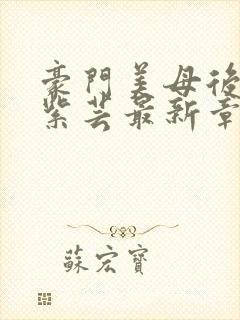 豪門美母後
紫芸最新章
蘇宏寶